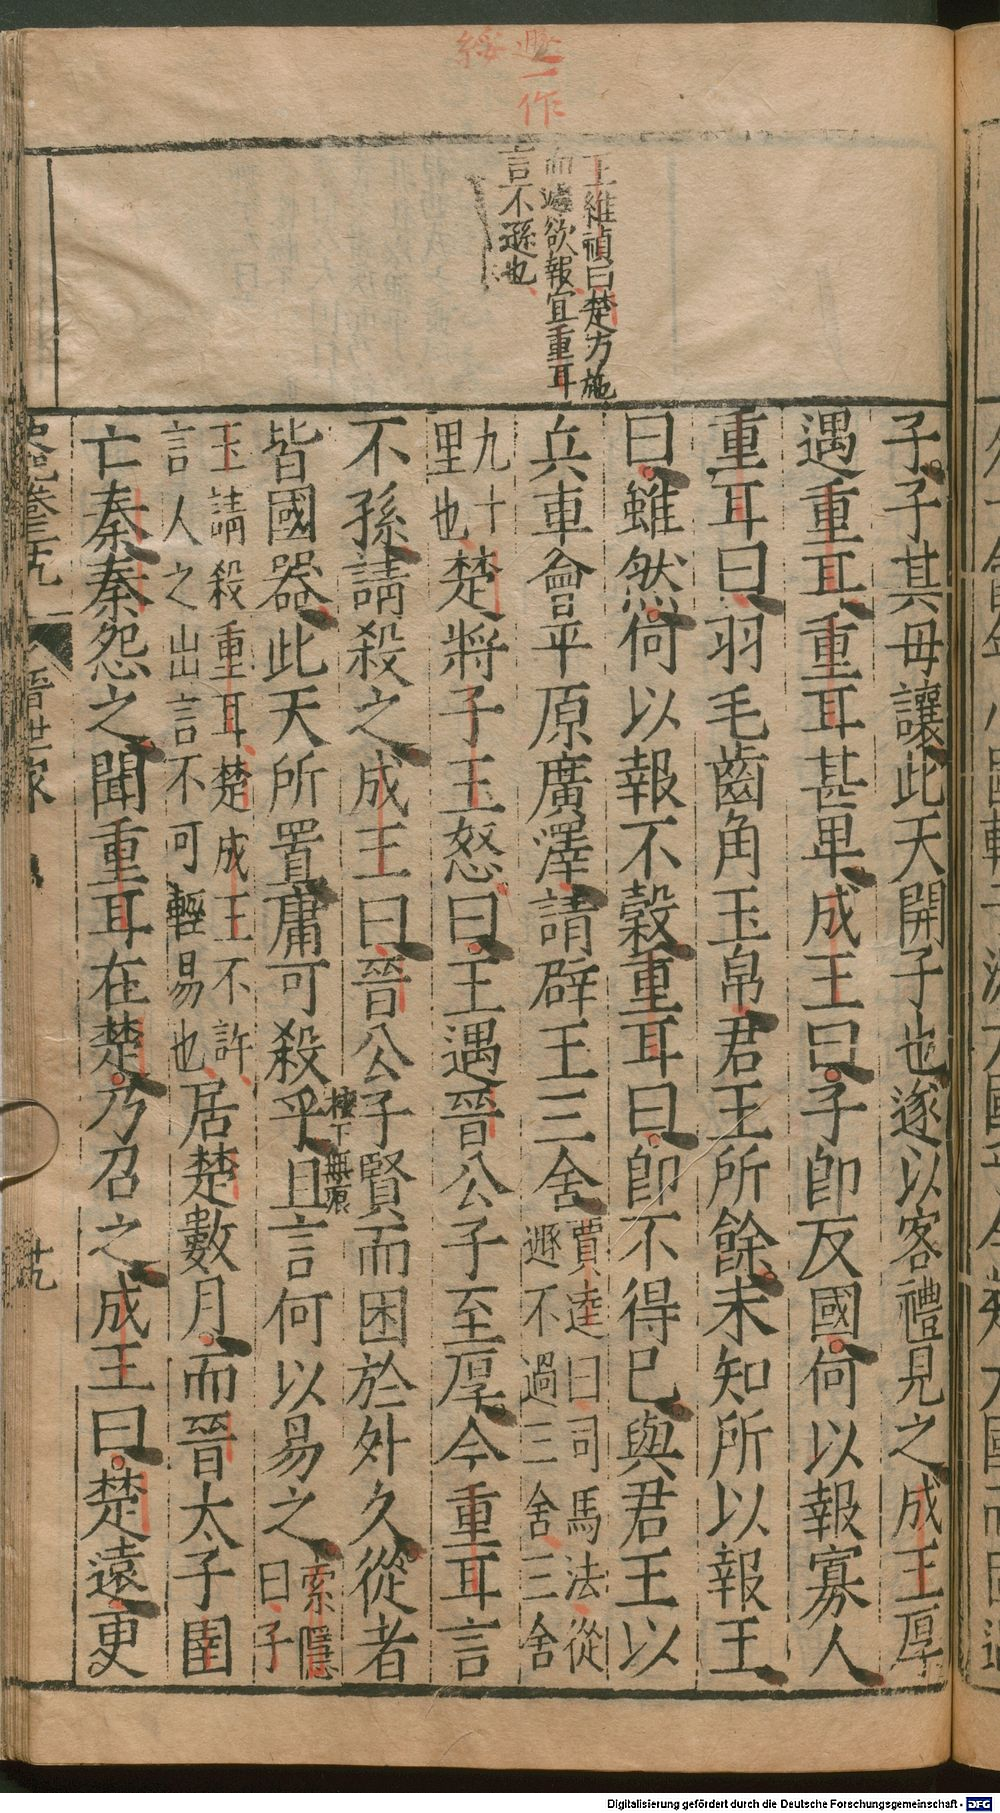 遯一作
綏
王維禎曰楚方施
而遽欲報宜重耳
言不遜也
子子其毋讓此天開子也遂以客禮見之成王厚
遇重耳重耳甚卑成王曰子卽反國何以報寡人
重耳曰羽毛齒角玉帛君王所餘未知所以報王
曰雖然何以報不穀重耳曰卽不得已與君王以
兵車會平原廣澤請辟王三舍
賈逵曰司馬法從
遯不過三舍三舍
九十
里也
楚將子玉怒曰王遇晉公子至厚今重耳言
不孫請殺之成王曰晉公子賢而困於外久從者
皆國器此天所置庸可殺乎且言何以易之
索隱
曰子
玉請殺重耳楚成王不許
言人之出言不可輕易也
居楚數月而晉太子圉
亡秦秦怨之聞重耳在楚乃召之成王曰楚遠更
史記卷三十九
晉世家
廿九
Digitalisierung gefördert durch die Deutsche Forschungsgemeinschaft - DFG